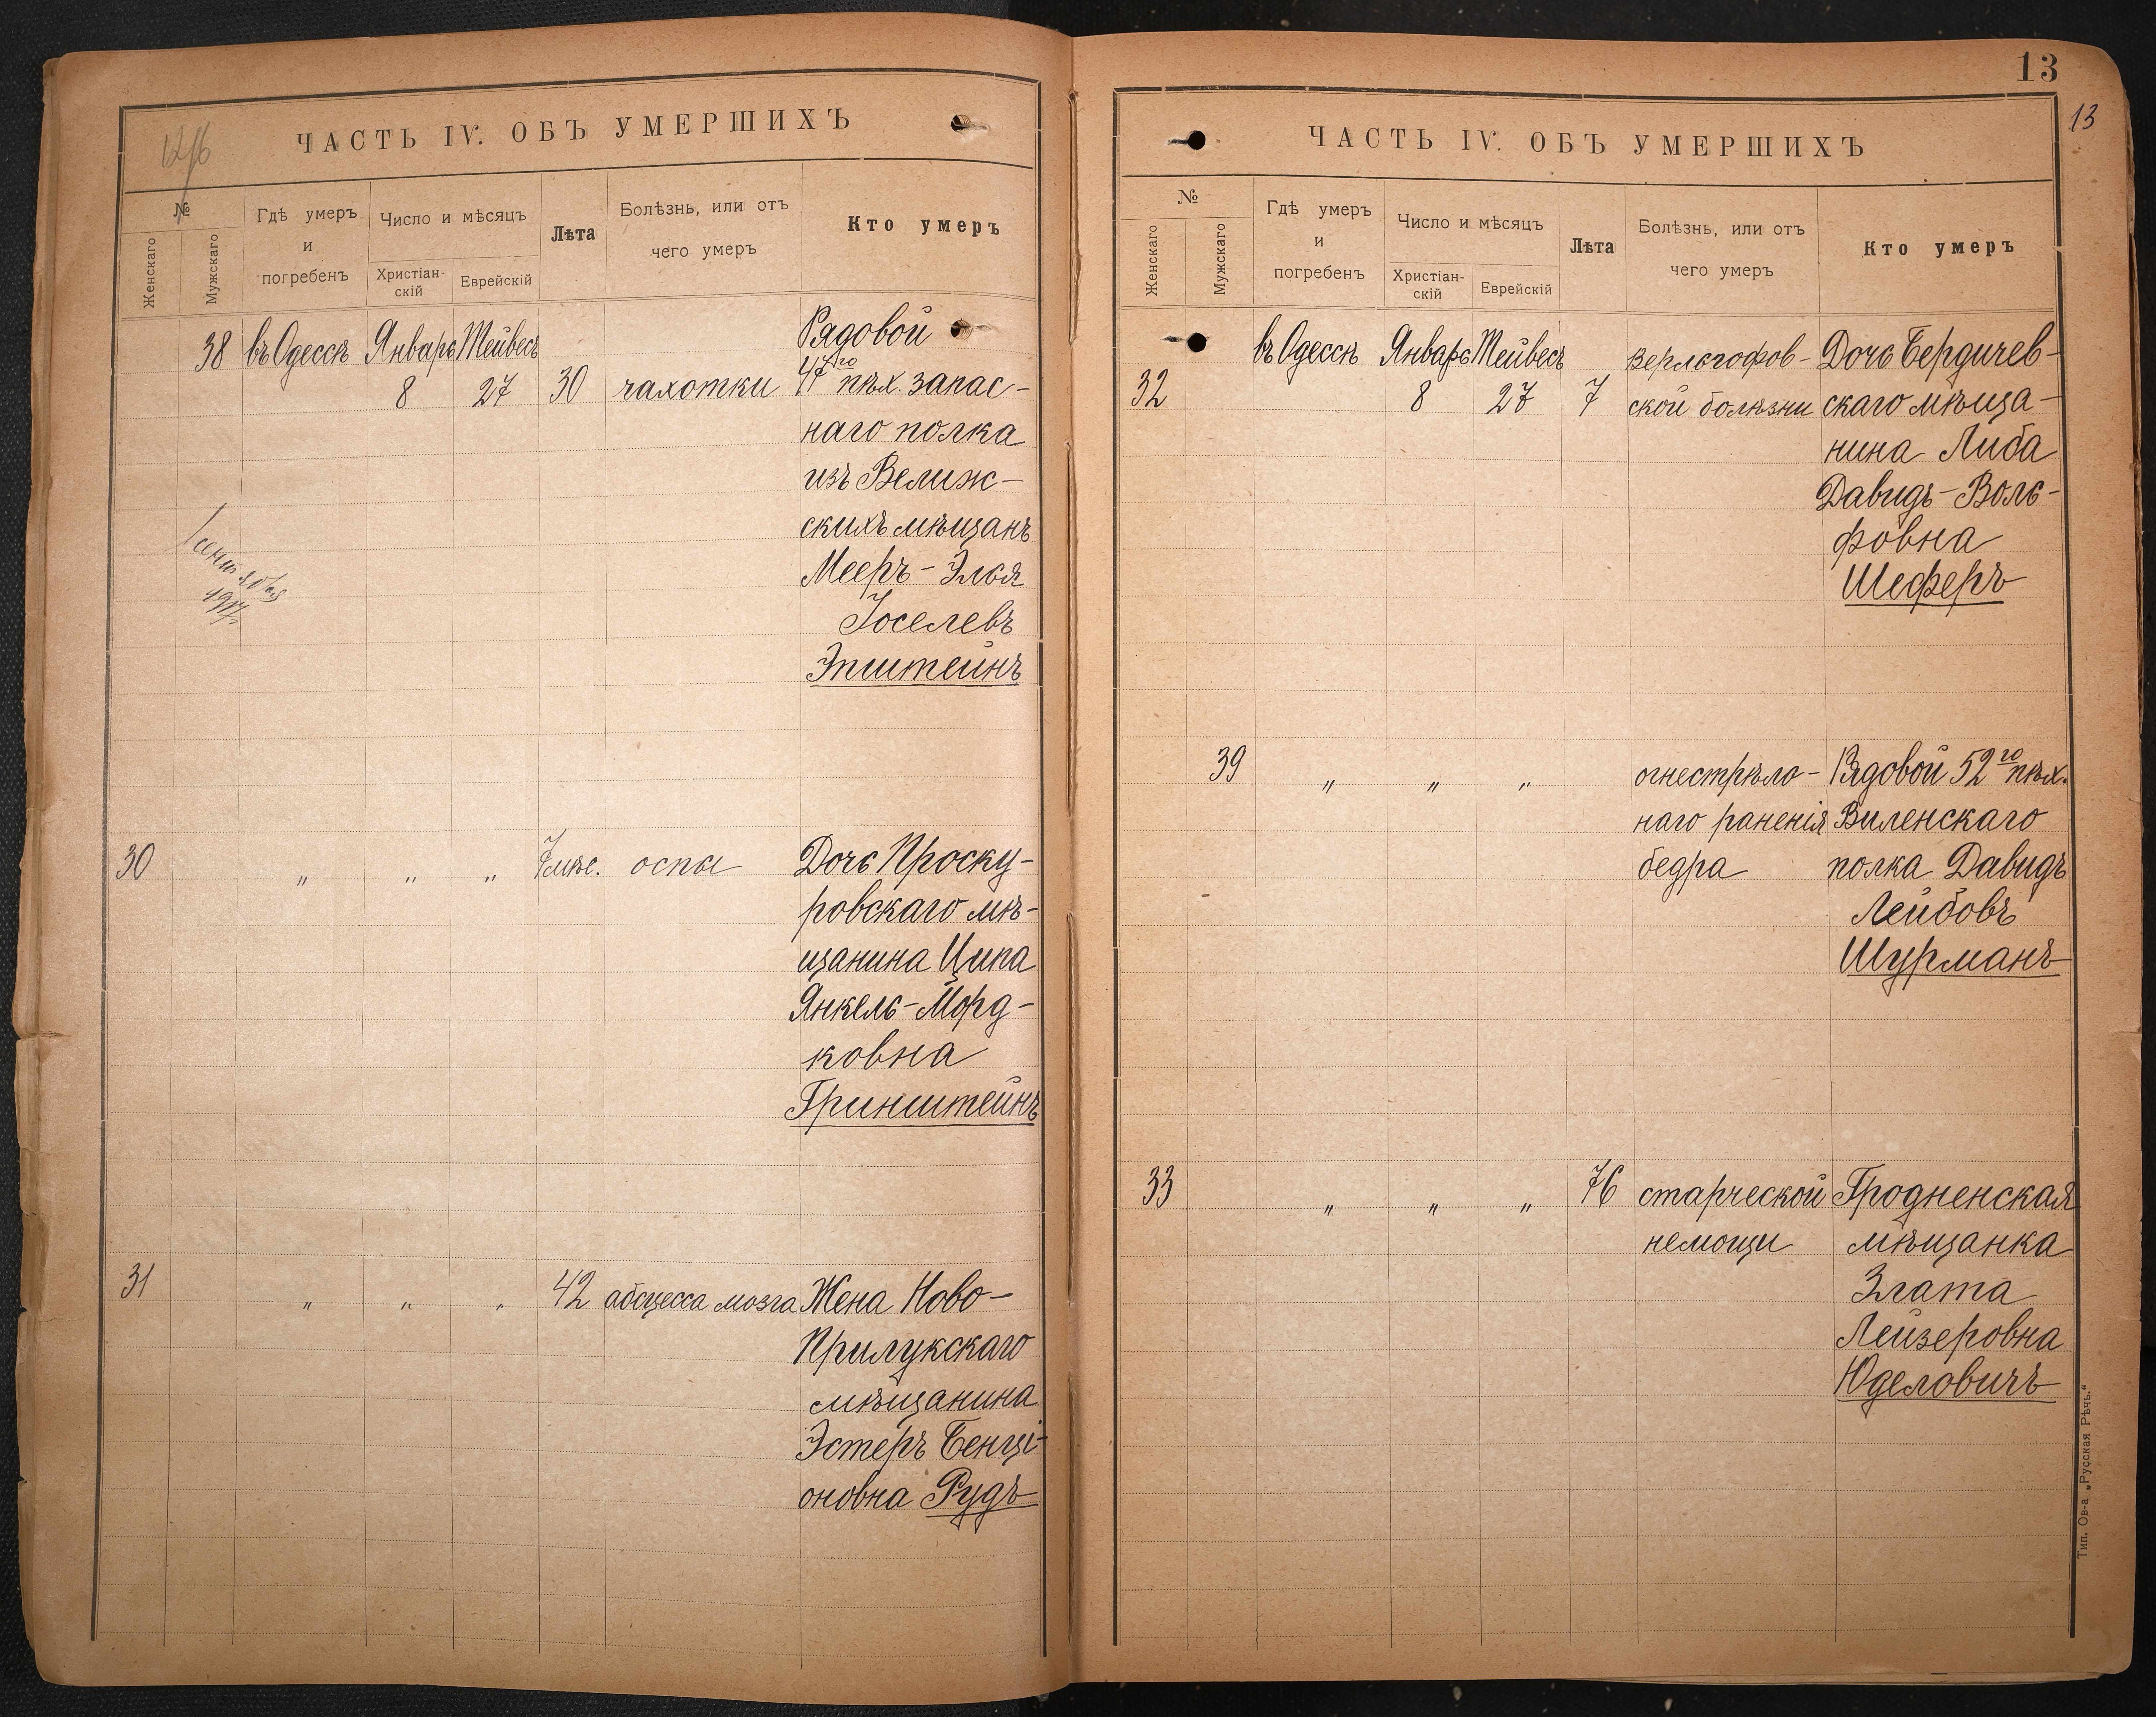 ЧАСТЬ IV. ОБЪ УМЕРШИХЪ
№
Женскаго
Мужскаго
Гдѣ умеръ
и
погребенъ
Число и мѣсяцъ
Христіан-
скій
Еврейскій
Лѣта
Болѣзнь, или отъ
чего умеръ
Кто умеръ
38 въ Одессѣ Январь Тейвесъ Рядовой
8 27 30 чахотки 47го пѣх. запас-
наго полка
изъ Велиж-
скихъ мѣщанъ
Мееръ-Элья
Іоселевъ
Эпштейнъ
30 " " " 7 мѣс. оспы Дочь Проску-
ровскаго мѣ-
щанина Ципа
Янкель-Морд-
ковна
Гринштейнъ
31 " " " 42 абсцесса мозга Жена Ново-
Прилукскаго
мѣщанина
Эстеръ Бенці-
оновна Рудъ
13
13
ЧАСТЬ IV. ОБЪ УМЕРШИХЪ
№
Женскаго
Мужскаго
Гдѣ умеръ
и
погребенъ
Число и мѣсяцъ
Христіан-
скій
Еврейскій
Лѣта
Болѣзнь, или отъ
чего умеръ
Кто умеръ
въ Одессѣ Январь Тейвесъ верльгофов- Дочь Бердичев-
32 8 27 7 ской болѣзни скаго мѣща-
нина Либа
Давидъ-Воль-
фовна
Шеферъ
39 " " " огнестрѣло- Рядовой 52го пѣх.
наго раненія Виленскаго
бедра полка Давидъ
Лейбовъ
Шурманъ
33 " " " 76 старческой Гродненская
немощи мѣщанка
Злата
Лейзеровна
Юделовичъ
Тип. Ов-а „Русская Рѣчь."